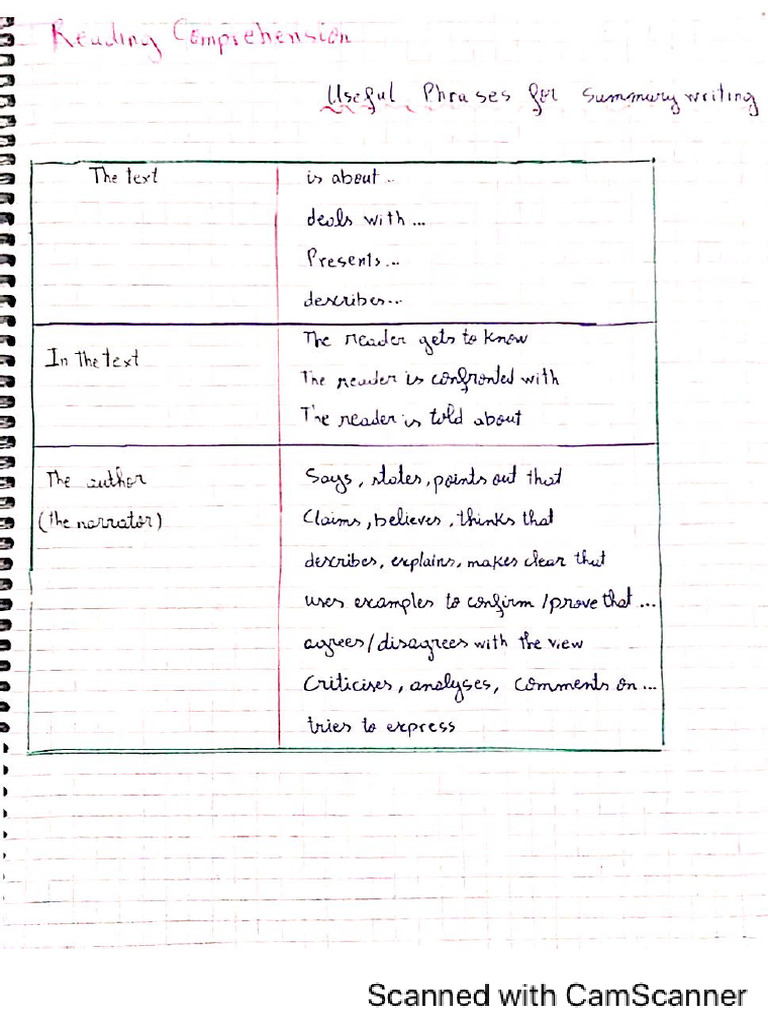 Reading Comprehension
Useful Phrases for Summary writing
The text
is about ..
deals with ...
Presents...
describes...
In the text
The reader gets to know
The reader is confronted with
The reader is told about
The author
(the narrator)
Says, states, points out that
Claims, believes, thinks that
describes, explains, makes clear that
uses examples to confirm / prove that ...
agrees / disagrees with the view
Criticises, analyses, comments on ...
tries to express
Scanned with CamScanner